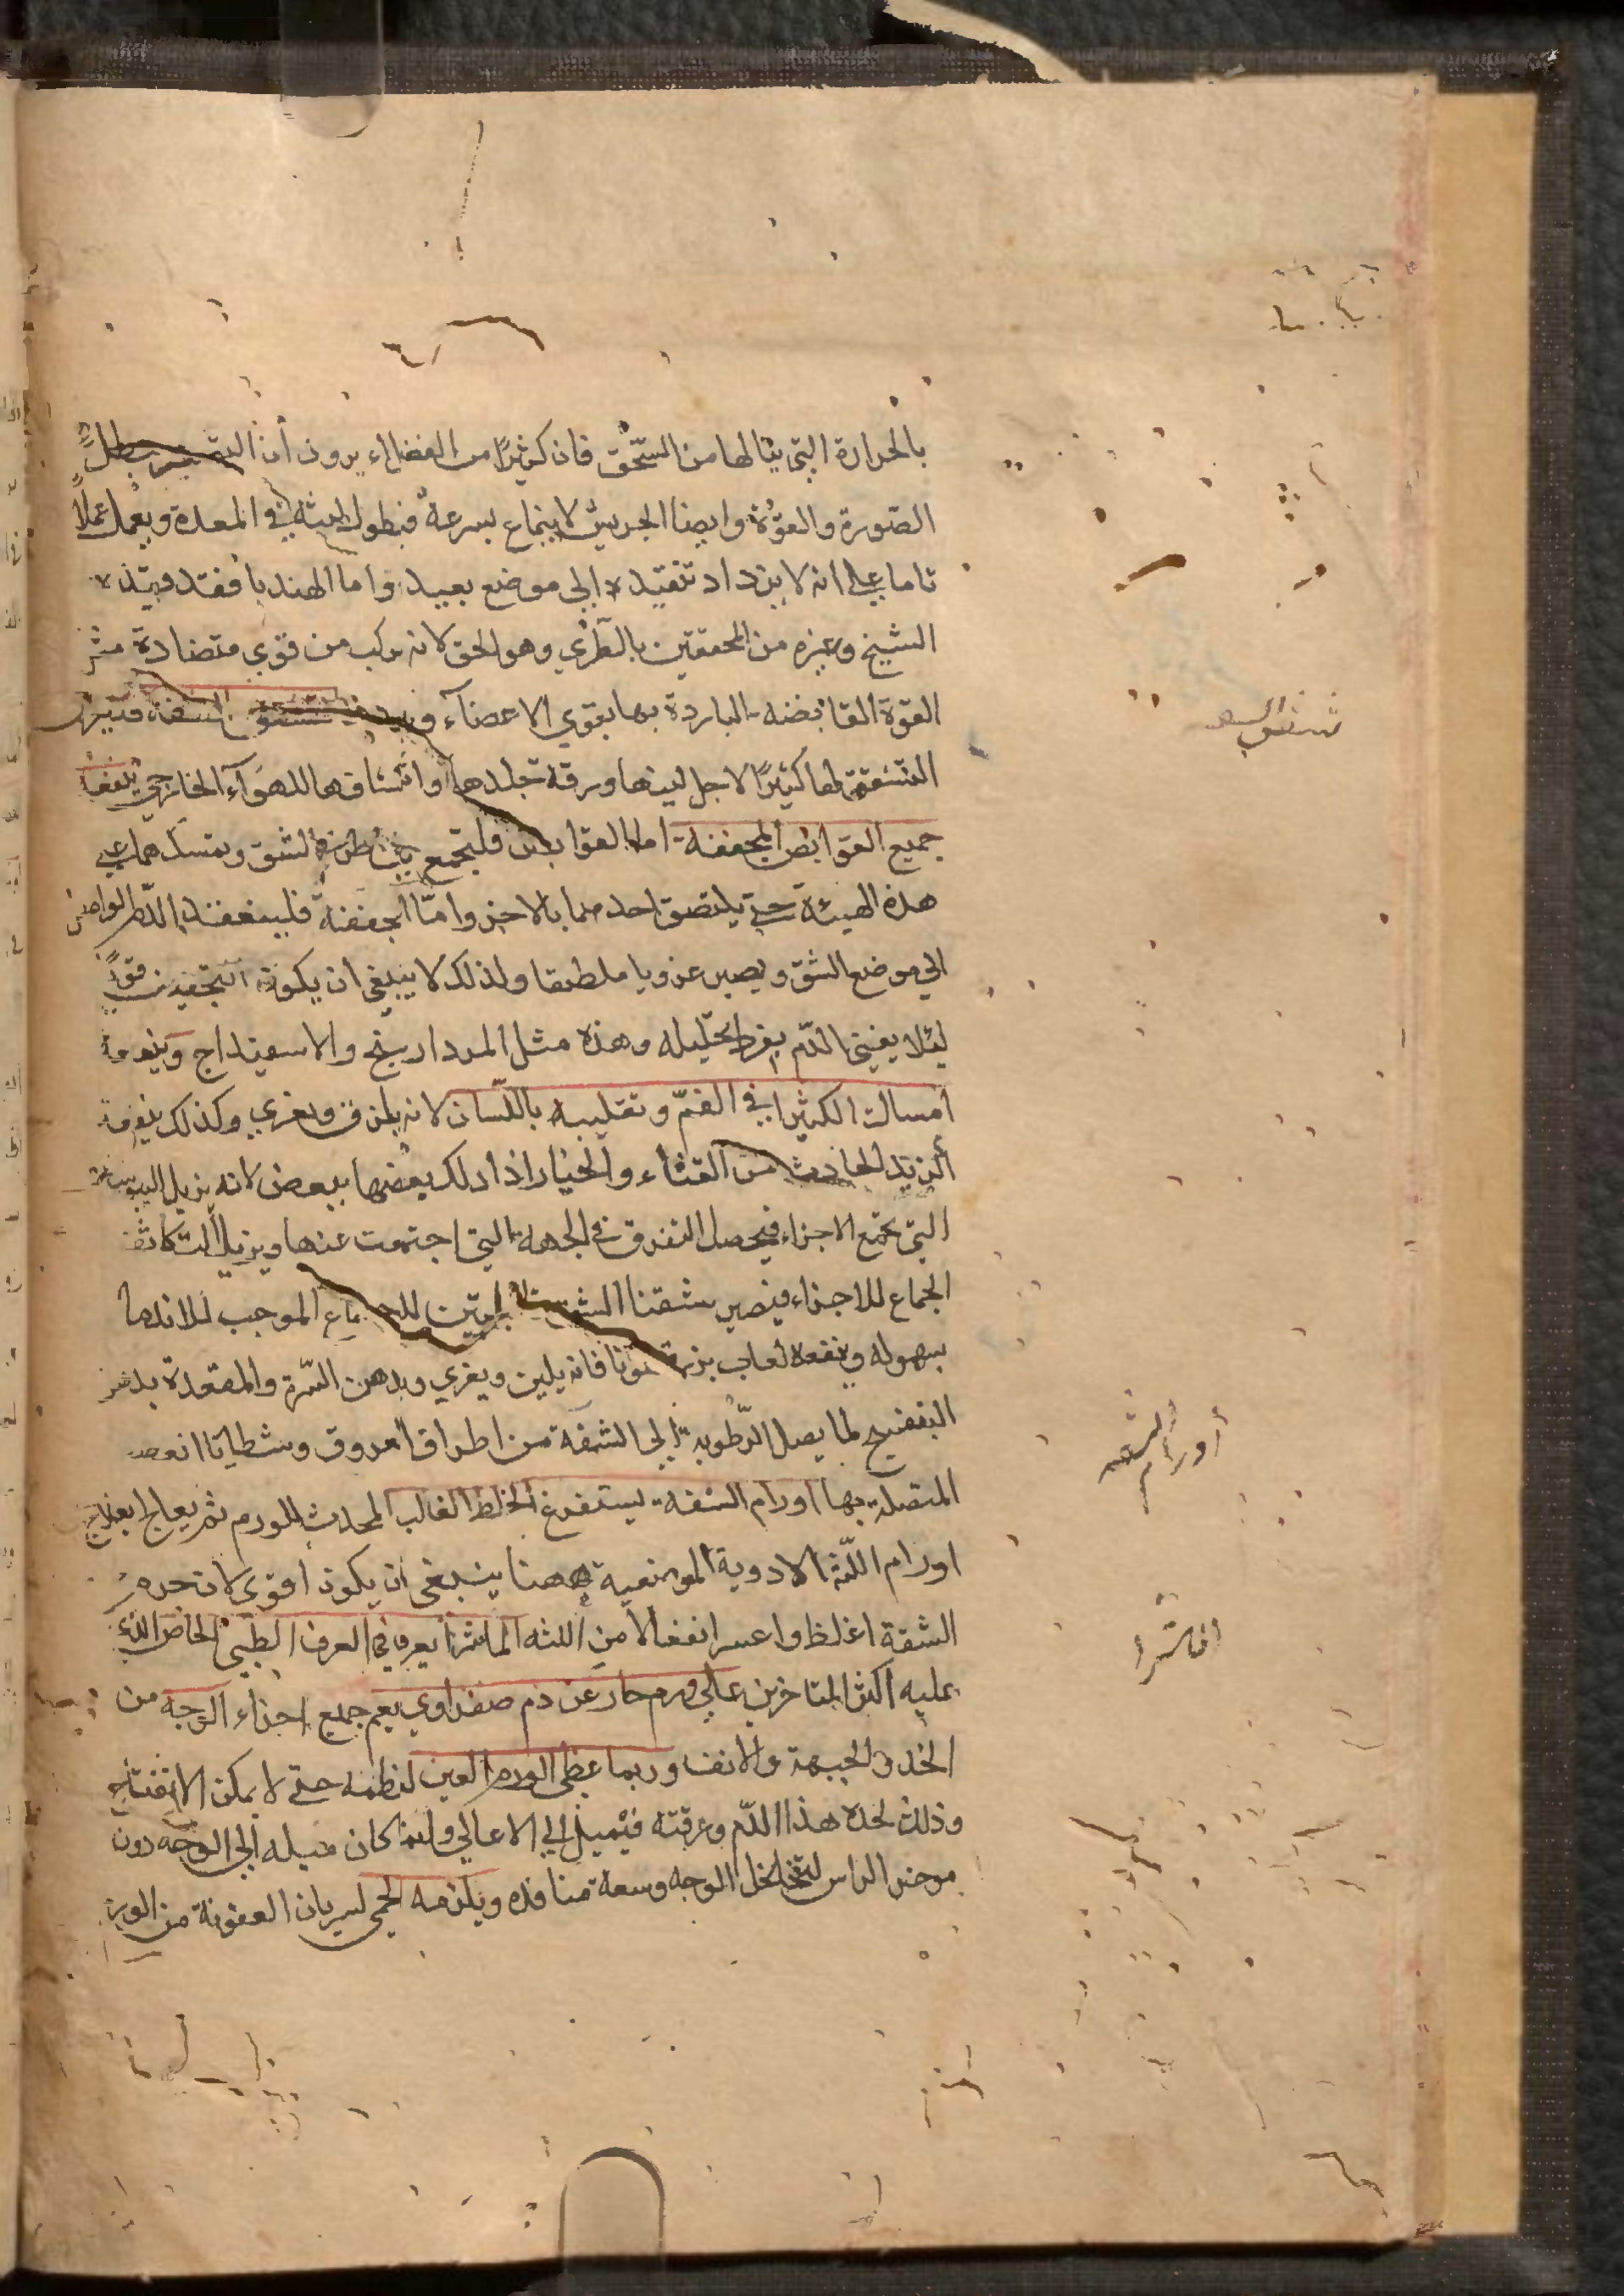 بالحرارة التي ينالها من السحق فان كثيرًا من الفضلاء يرون أن
الصورة والقوة وايضا الجريش لا ينماع بسرعة فيطول لبثه في المعدة ويعمل عملًا
تاما على انه لا يزداد تنفيذه الى موضع بعيد واما الهندبا فقد قيده
الشيخ وغيره من المحققين بالطري وهو الحق لانه مركب من قوي متضادة
القوة القابضه الباردة بها يقوي الاعضآء تشقق الشفة
التشقق لها كثيرًا لاجل لينها ورقة جلدها للهوآء الخارجي ينفعه
جميع القوابض المجففة اما القوابض فليجمع طرفي الشق ويمسكهما على
هذه الهيئة حتى يلتصق احدهما بالاخر وامّا المجففة فليغلظ الدم الواصل
الى موضع الشق ويصير غرويا ملصقا ولذلك لا ينبغي ان يكون التجفيف قويًا
لئلا يفنى الدّم بفرط تحليله وهذه مثل المرداسنج والاسفيداج وينفعه
امساك الكثيرا في الفمّ وتقليبه باللّسان لانه يلزق ويغري وكذلك ينفعه
الزبد الحادث من القثاء والخيار اذا دلك بعضها ببعض لانه يزيل اليبوسة
التي تجمع الاجزاء فيحصل التفرق في الجهة التي اجتمعت عنها ويزيل التكاثف
الجماع للاجزاء فيصير شفتا الشق للاجتماع الموجب للاندمال
بسهوله وينفعه لعاب بزرقطونا فانه يلين ويغري وبدهن السّرة والمقعدة بدهن
البنفسج لما يصل الرّطوبة الى الشفة من اطراف العروق وشظايا العصب
المتصلة بها اورام الشفة يستفرغ الخلط الغالب المحدث للورم ثم يعالج بعلاج
اورام اللّثة الادوية الموضعية ههنا ينبغي ان يكون اقوى لان جرم
الشفة اغلظ واعسر انفعالا من اللثه الماشرا يعرف في العرف الطبي الخاص الذي
عليه اكثر المتاخرين على ورم حار عن دم صفراوي يعم جميع اجزاء الوجه من
الخد والجبهة والانف وربما غطى الورم العين لعظمه حتى لا يمكن الانفتاح
وذلك لحدة هذا الدّم ورقته فيميل الى الاعالي وانما كان ميله الى الوجه دون
موخر الراس لتخلخل الوجه وسعة منافذه ويلزمه الحمى لسريان العفونة من الورم
شقاق الشفه
أورام الشفه
الماشرا